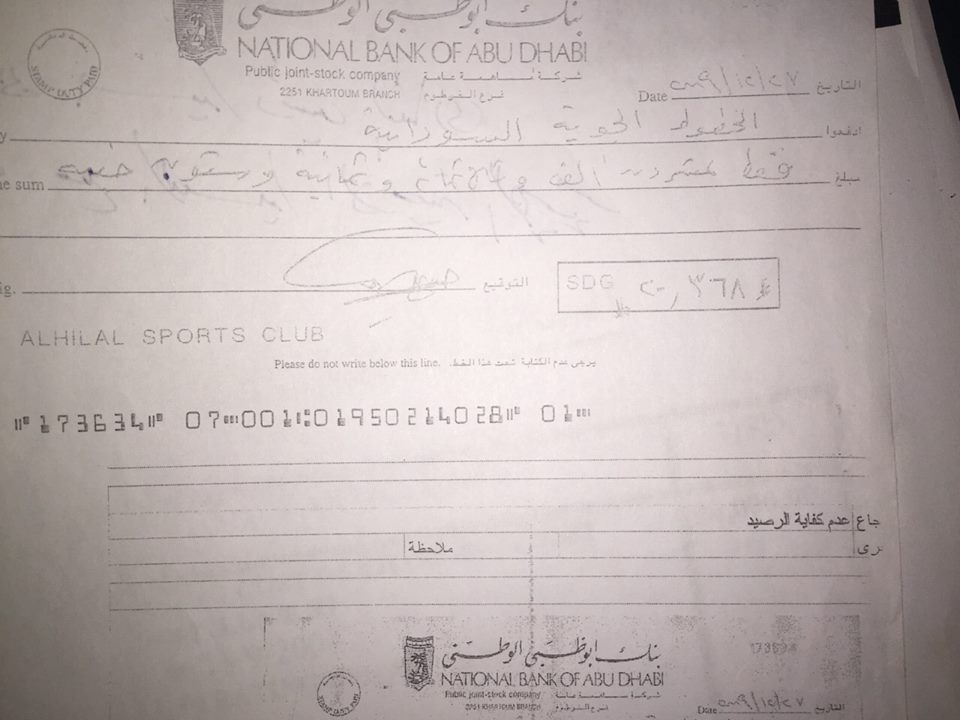 بنك ابوظبي الوطني
NATIONAL BANK OF ABU DHABI
Public joint-stock company شركة مساهمة عامة
2251 KHARTOUM BRANCH فرع الخرطوم
STAMP DUTY PAID
Date ٢٠٠٩/١٢/٢٧ التاريخ
ادفعوا الخطوط الجوية السودانية
sum فقط عشرون الف وثلاثمائة وثمانية وستون جنيه مبلغ
التوقيع
SDG ٢٠,٣٦٨
ALHILAL SPORTS CLUB
Please do not write below this line. يرجى عدم الكتابة تحت هذا الخط.
173634 07 001 01950214028 01
جاع عدم كفاية الرصيد
رى ملاحظة
بنك ابوظبي الوطني
173634
NATIONAL BANK OF ABU DHABI
Public joint-stock company شركة مساهمة عامة
2251 KHARTOUM BRANCH فرع الخرطوم
STAMP DUTY PAID
Date ٢٠٠٩/١٢/٢٧ التاريخ